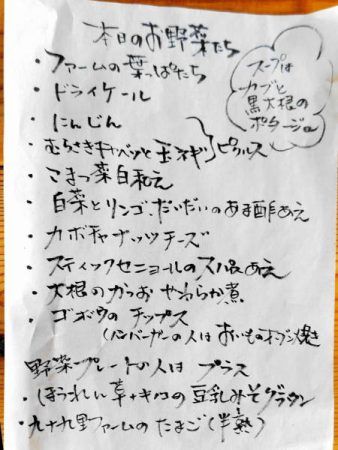 本日のお野菜たち
スープは
カブと
黒大根の
ポタージュ
・ファームの葉っぱたち
・ドライケール
・にんじん
・むらさきキャベツと玉ネギ
ピクルス
・こまつ菜白和え
・白菜とリンゴ、だいだいのあま酢あえ
・カボチャナッツチーズ
・スティックセニョールのスパムあえ
・大根のかつおやわらか煮
・ゴボウのチップス
(ハンバーガーの人はおいものオーブン焼き
野菜プレートの人は プラス
・ほうれん草+キノコの豆乳みそグラタン
・九十九里ファームのたまご(半熟)